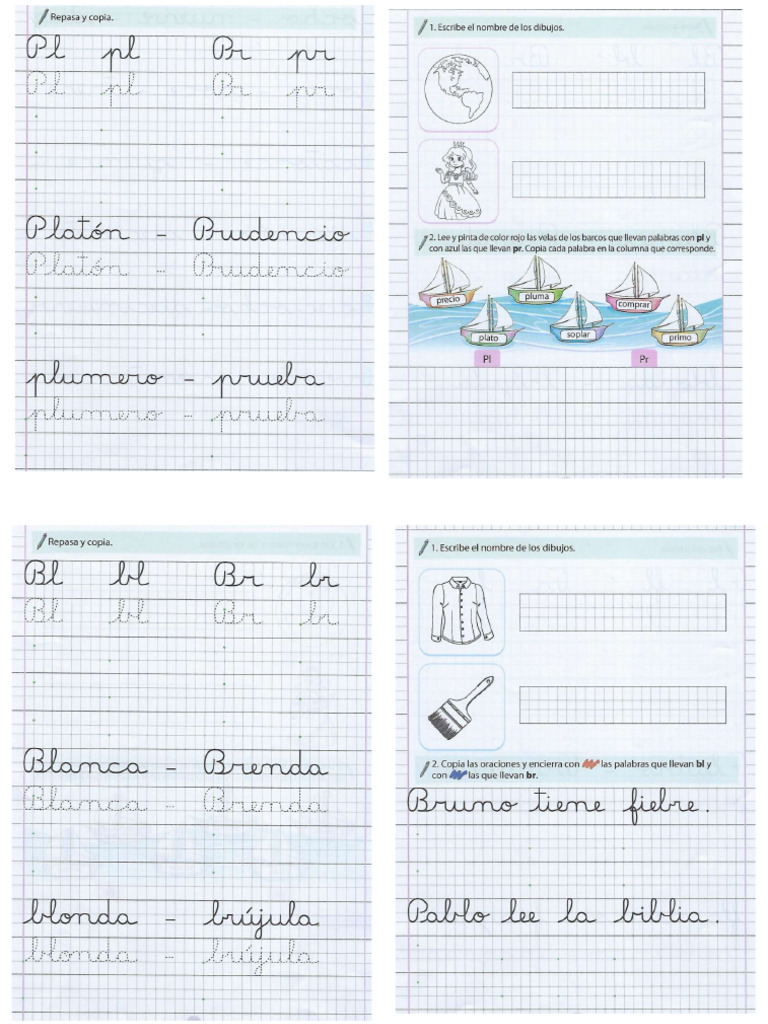 Repasa y copia.
Pl pl Pr pr
Pl pl Pr pr
Platón - Prudencio
Platón - Prudencio
plumero - prueba
plumero - prueba
1. Escribe el nombre de los dibujos.
2. Lee y pinta de color rojo las velas de los barcos que llevan palabras con pl y
con azul las que llevan pr. Copia cada palabra en la columna que corresponde.
precio pluma comprar
plato soplar primo
Pl Pr
Repasa y copia.
Bl bl Br br
Bl bl Br br
Blanca - Brenda
Blanca - Brenda
blonda - brújula
blonda - brújula
1. Escribe el nombre de los dibujos.
2. Copia las oraciones y encierra con las palabras que llevan bl y
con las que llevan br.
Bruno tiene fiebre.
Pablo lee la biblia.